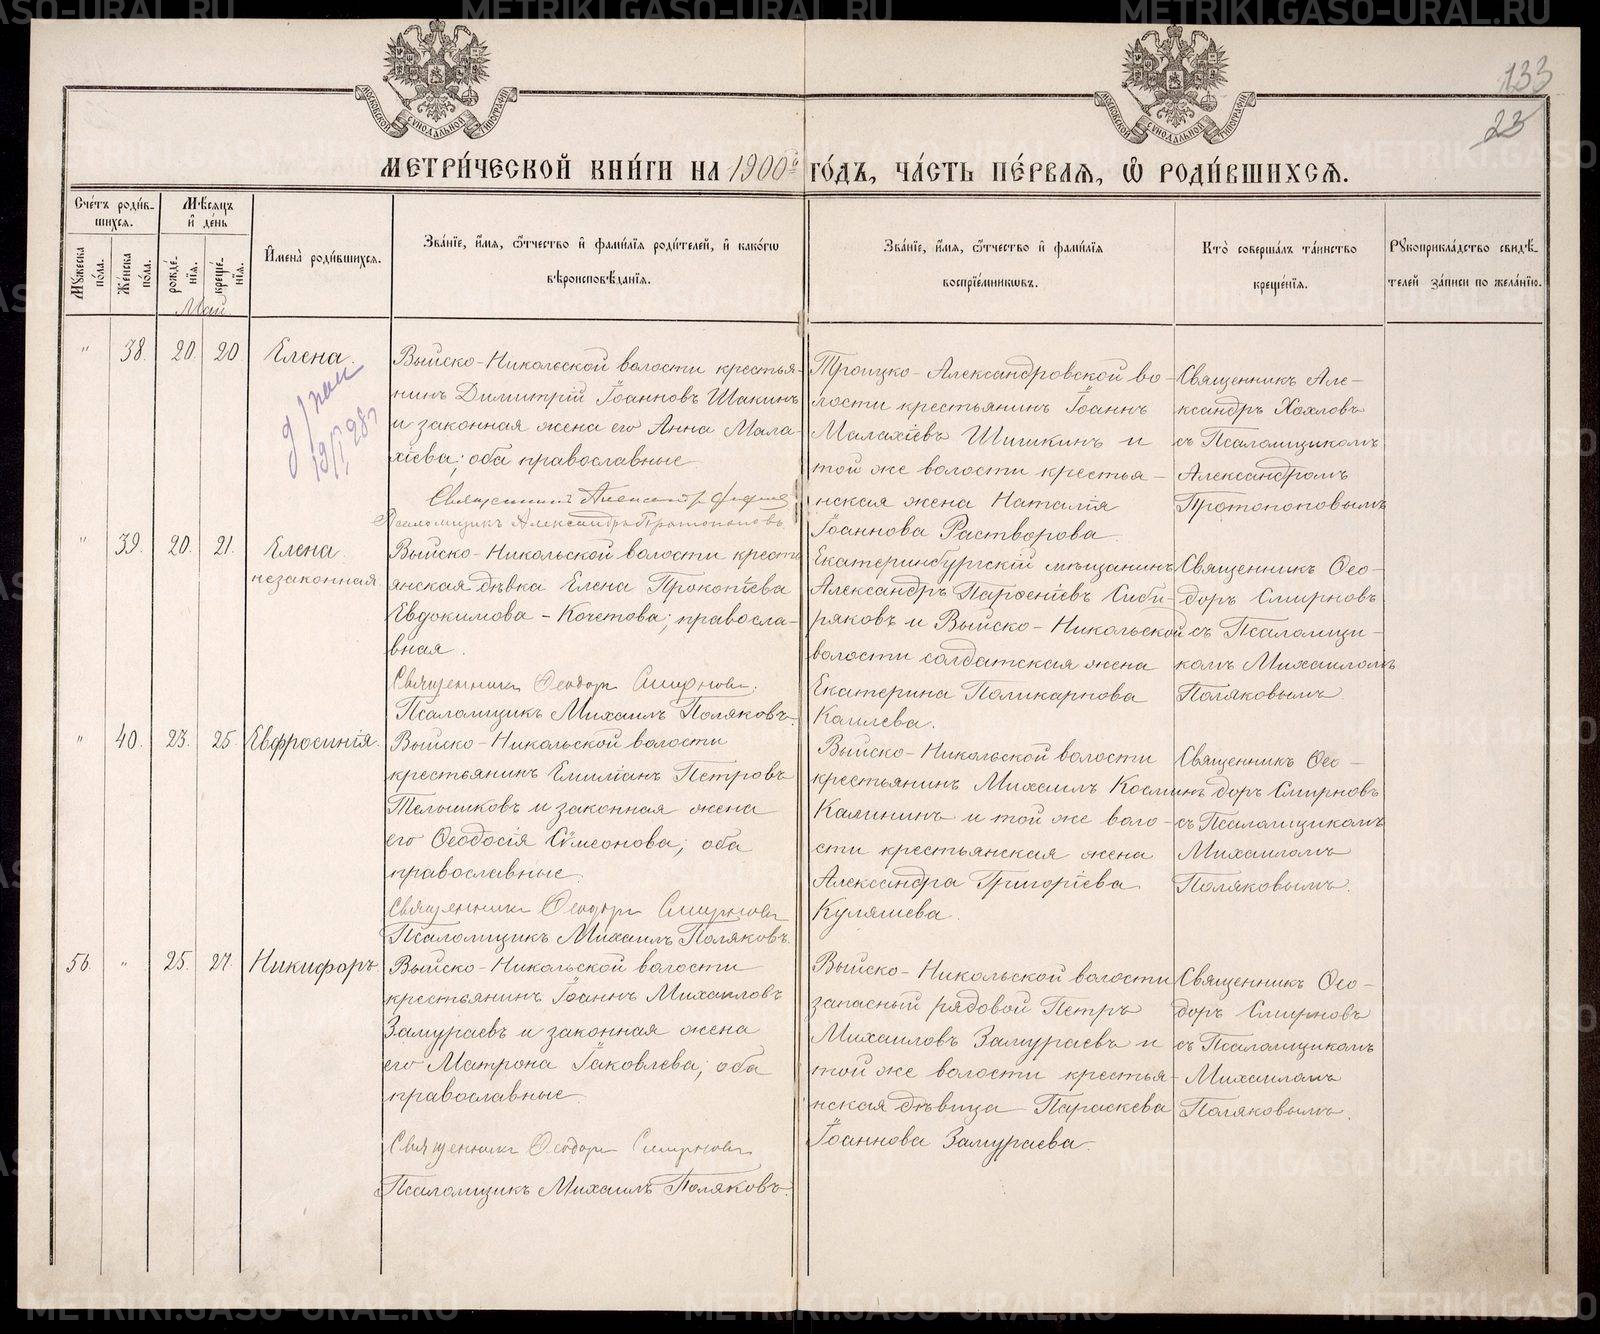 METRIKI.GASO-URAL.RU
133
23
МОСКОВСКОЙ СѴНОДАЛЬНОЙ ТИПОГРАФІИ
МОСКОВСКОЙ СѴНОДАЛЬНОЙ ТИПОГРАФІИ
МЕТРИ́ЧЕСКОЙ КНИ́ГИ НА 1900й ГО́ДЪ, ЧА́СТЬ ПЕ́РВАѦ, Ѽ РОДИ́ВШИХСѦ.
Сче́тъ роди́в-
шихсѧ.
Мꙋжеска по́ла.
Же́нска по́ла.
Мѣ́сѧцъ
и҆ де́нь
рожде́-
нїѧ.
креще́-
нїѧ.
Май
И҆мена̀ роди́вшихсѧ.
Зва́нїе, и҆́мѧ, ѻ҆́тчество и҆ фами́лїѧ роди́телей, и҆ како́гѡ
вѣроисповѣ́данїѧ.
Зва́нїе, и҆́мѧ, ѻ҆́тчество и҆ фами́лїѧ
воспрїе́мникѡвъ.
Кто̀ соверша́лъ та́инство
креще́нїѧ.
Рꙋкоприкла́дство свидѣ́-
телей за́писи по жела́нїю.
" 38. 20. 20 Елена.
Выйско-Никольской волости крестья-
нинъ Димитрій Іоанновъ Шакинъ
и законная жена его Анна Мала-
хіева; оба православные
Священникъ Александръ
Псаломщикъ Александръ Протопоповъ
Троицко-Александровской во-
лости крестьянинъ Іоаннъ
Малахіевъ Шишкинъ и
той же волости крестья-
нская жена Наталія
Іоаннова Растворова.
Священникъ Але-
ксандръ Хохловъ
съ Псаломщикомъ
Александромъ
Протопоповымъ
" 39. 20. 21. Елена
незаконная
Выйско-Никольской волости крестъ
янская дѣвка Елена Прокопіева
Евдокимова-Кочетова; правосла-
вная.
Священникъ Ѳеодоръ Смирновъ.
Псаломщикъ Михаилъ Поляковъ.
Екатеринбургскій мѣщанинъ
Александръ Парѳеніевъ Сиби-
ряковъ и Выйско-Никольской
волости солдатская жена
Екатерина Поликарпова
Священникъ Ѳео-
доръ Смирновъ
съ Псаломщи-
комъ Михаиломъ
Поляковымъ
" 40. 23. 25. Евфросинія.
Выйско-Никольской волости
крестьянинъ Емиліанъ Петровъ
Тельшиковъ и законная жена
его Ѳеодосія Сѵмеонова; оба
православные.
Священникъ Ѳеодоръ Смирновъ
Псаломщикъ Михаилъ Поляковъ.
Выйско-Никольской волости
крестьянинъ Михаилъ Косминъ
Калининъ и той же воло-
сти крестьянская жена
Александра Григоріева
Куляшева.
Священникъ Ѳео-
доръ Смирновъ
съ Псаломщикомъ
Михаиломъ
Поляковымъ.
56. " 25. 27. Никифоръ.
Выйско-Никольской волости
крестьянинъ Іоаннъ Михаиловъ
Замураевъ и законная жена
его Матрона Іаковлева; оба
православные.
Священникъ Ѳеодоръ Смирновъ
Псаломщикъ Михаилъ Поляковъ.
Выйско-Никольской волости
запасный рядовой Петръ
Михаиловъ Замураевъ и
той же волости крестья-
нская дѣвица Параскева
Іоаннова Замураева.
Священникъ Ѳео-
доръ Смирновъ
съ Псаломщикомъ
Михаиломъ
Поляковымъ.